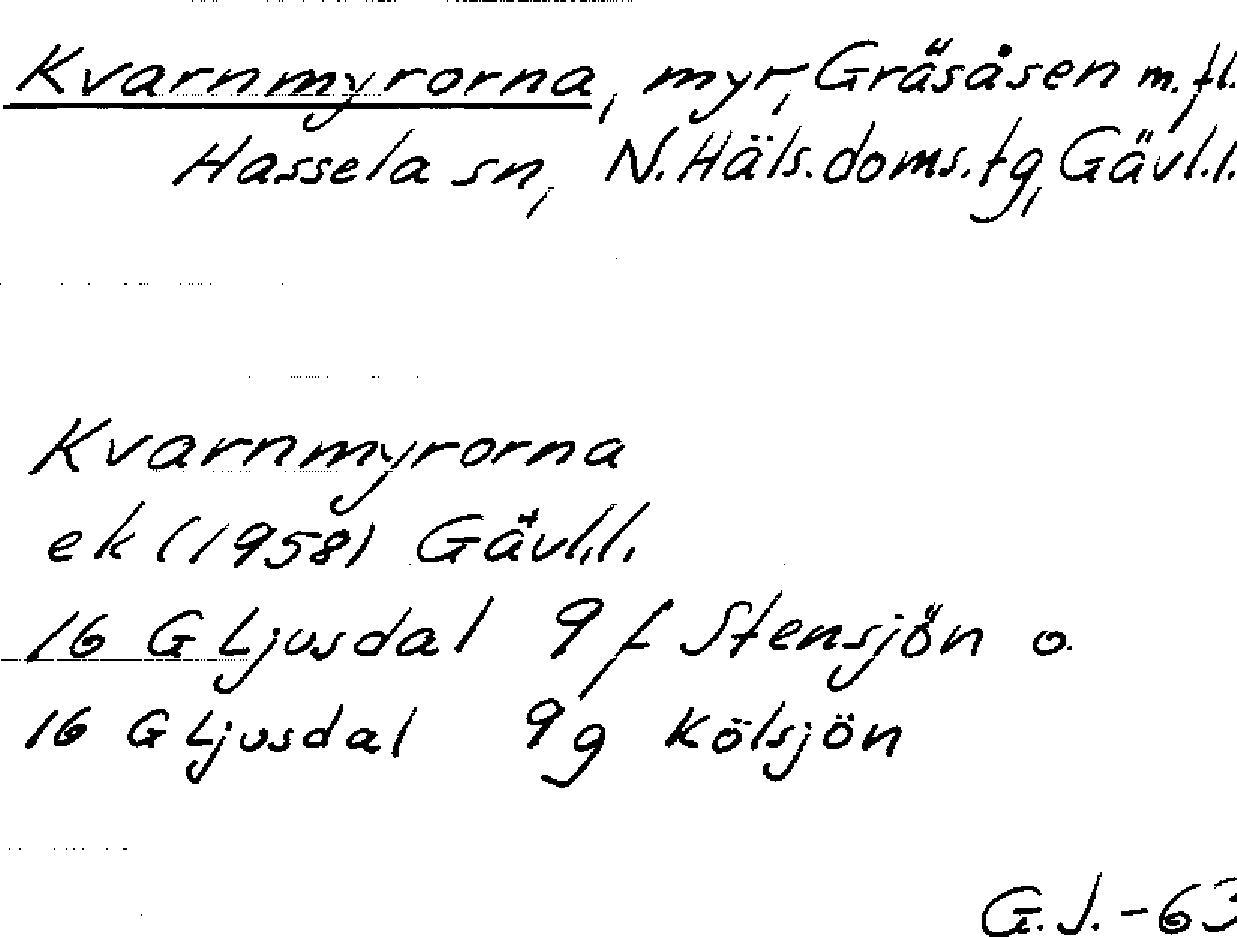 Kvarnmyrorna, myr, Gräsåsen m. fl.
Hassela sn, N. Häls. doms. tg, Gävl. l.
Kvarnmyrorna
ek (1958) Gävl. l.
16 G Ljusdal 9 f Stensjön o.
16 G Ljusdal 9g Kölsjön
G. J. - 63